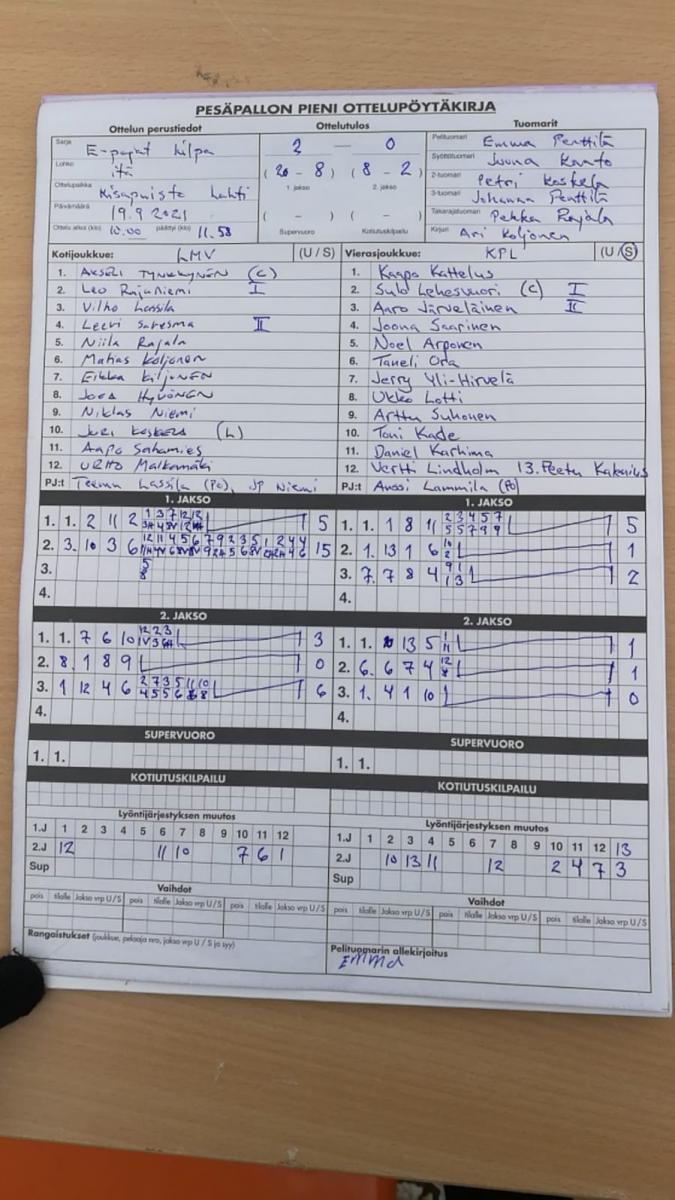 PESÄPALLON PIENI OTTELUPÖYTÄKIRJA
Ottelun perustiedot Ottelutulos Tuomarit
Sarja E-pojat kilpa
Lohko itä
Ottelupaikka Kisapuisto Lahti
Päivämäärä 19.9.2021
Ottelu alkoi (klo) 10.00 päättyi (klo) 11.58
2 — 0
(20 - 8) (8 - 2)
1. jakso 2. jakso
( - ) ( - )
Supervuoro Kotiutuskilpailu
Pelituomari Emma Penttilä
Syöttötuomari Joona Kaato
2-tuomari Petri Koskela
3-tuomari Johanna Penttilä
Takarajatuomari Pekka Rajala
Kirjuri Ari Koljonen
Kotijoukkue: LMV (U / S) Vierasjoukkue: KPL (U/S)
1. AKSELI TYNKKYNEN (C)
2. Leo Rajaniemi I
3. Vilho Lassila
4. Leevi Saresma II
5. Niila Rajala
6. Matias Koljonen
7. Eikka Kiljunen
8. Joea Hyvönen
9. Niklas Niemi
10. Juri Koskela (L)
11. Aapo Sahamies
12. Urho Malkamäki
PJ:t Teemu Lassila (PO), JP Niemi
1. Kaapo Kattelus
2. Sulo Lehesvuori (C) I
3. Aaro Järveläinen II
4. Joona Saarinen
5. Noel Arponen
6. Taneli Ora
7. Jerry Yli-Hirvelä
8. Ukko Lotti
9. Arttu Suhonen
10. Toni Kade
11. Daniel Karhima
12. Vertti Lindholm 13. Peetu Kakaius
PJ:t Anssi Lammila (PO)
1. JAKSO 1. JAKSO
1. 1. 2 11 2 5
2. 3. 10 3 6 15
3.
4.
1. 1. 1 8 11 5
2. 1. 13 1 6 1
3. 7. 7 8 4 2
4.
2. JAKSO 2. JAKSO
1. 1. 7 6 10 3
2. 8. 1 8 9 0
3. 1 12 4 6 6
4.
1. 1. 13 5 1
2. 6. 6 7 4 1
3. 1. 4 1 10 0
4.
SUPERVUORO SUPERVUORO
1. 1. 1. 1.
KOTIUTUSKILPAILU KOTIUTUSKILPAILU
Lyöntijärjestyksen muutos Lyöntijärjestyksen muutos
1.J 1 2 3 4 5 6 7 8 9 10 11 12
2.J 12 11 10 7 6 1
Sup
1.J 1 2 3 4 5 6 7 8 9 10 11 12 13
2.J 10 13 11 12 2 4 7 3
Sup
Vaihdot Vaihdot
pois tilalle Jakso vrp U/S pois tilalle Jakso vrp U/S pois tilalle Jakso vrp U/S
pois tilalle Jakso vrp U/S pois tilalle Jakso vrp U/S pois tilalle Jakso vrp U/S
Rangaistukset (joukkue, pelaaja nro, jakso vrp U / S ja syy)
Pelituomarin allekirjoitus
Emma